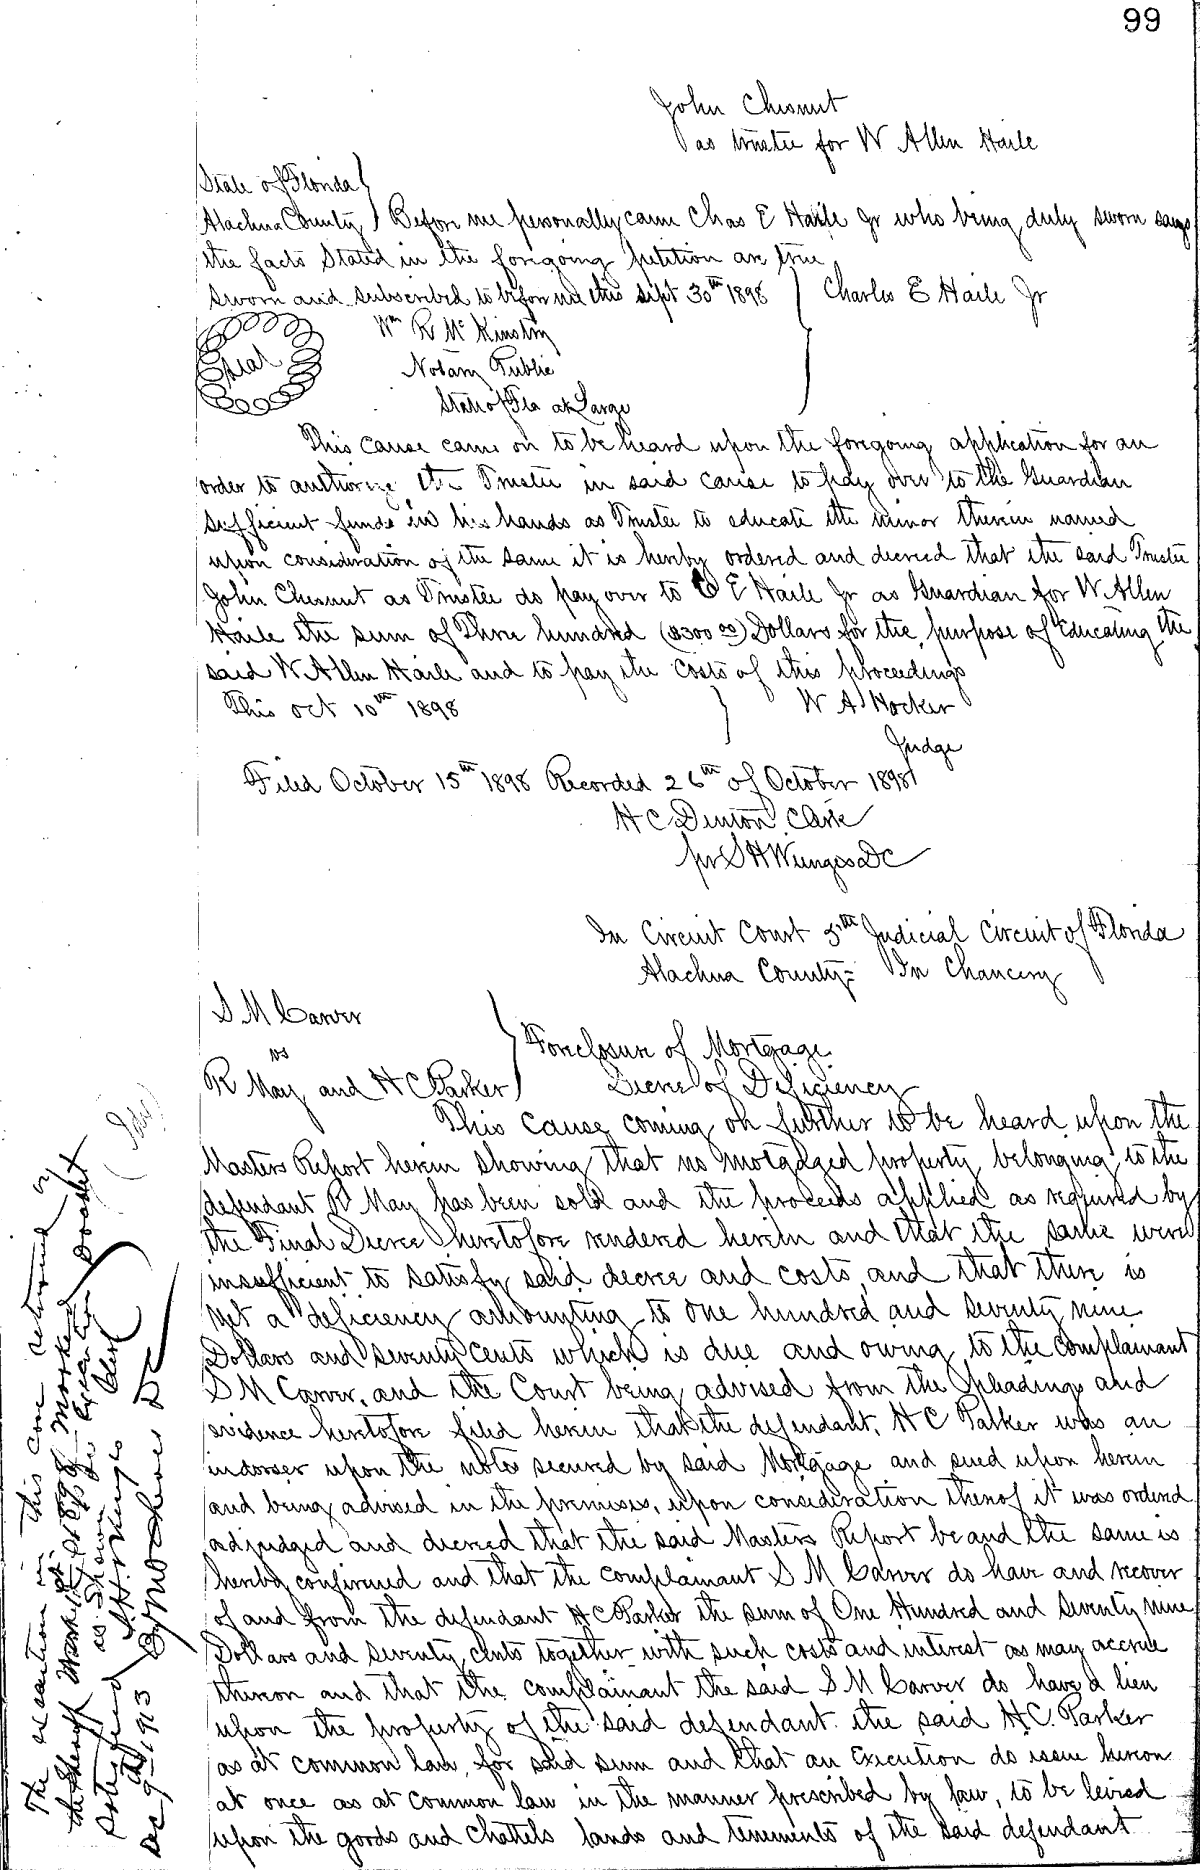 99
John Chesnut
as trustee for W Allen Haile
State of Florida
Alachua County } Before me personally came Chas E Haile Jr who being duly sworn says
the facts stated in the foregoing petition are true
Sworn and subscribed to before me this Sept 30th 1898 } Charles E Haile Jr
Wm R McKinstry
Seal
Notary Public
State of Fla at Large
This cause came on to be heard upon the foregoing application for an
order to authorize the Trustee in said cause to pay over to the Guardian
sufficient funds in his hands as Trustee to educate the minor therein named
upon consideration of the same it is hereby ordered and decreed that the said Trustee
John Chesnut as Trustee do pay over to C E Haile Jr as Guardian for W Allen
Haile the sum of Three hundred ($300 00) Dollars for the purpose of Educating the
said W Allen Haile and to pay the costs of this proceedings
This Oct 10th 1898 W A Hocker
Judge
Filed October 15th 1898 Recorded 26th of October 1898
H C Denton Clerk
pr S H Wienges DC
In Circuit Court 5th Judicial Circuit of Florida
Alachua County = In Chancery
S M Carver
vs
R May and H C Parker } Foreclosure of Mortgage.
Decree of Deficiency
This cause coming on further to be heard upon the
Masters Report herein showing that no mortgaged property belonging to the
defendant R May has been sold and the proceeds applied as required by
the Final Decree heretofore rendered herein and that the same were
insufficient to satisfy said decree and costs and that there is
yet a deficiency amounting to one hundred and seventy nine
Dollars and seventy cents which is due and owing to the complainant
S M Carver, and the Court being advised from the pleadings and
evidence heretofore filed herein that the defendant, H C Parker was an
indorser upon the notes secured by said Mortgage and sued upon herein
and being advised in the premises, upon consideration thereof it was ordered
adjudged and decreed that the said Masters Report be and the same is
hereby confirmed and that the complainant S M Carver do have and recover
of and from the defendant H C Parker the sum of One Hundred and Seventy nine
Dollars and seventy cents together with such costs and interest as may accrue
thereon and that the complainant the said S M Carver do have a lien
upon the property of the said defendant the said H.C. Parker
as at common law, for said sum and that an Execution do issue hereon
at once as at common law in the manner prescribed by law, to be levied
upon the goods and chattels lands and tenements of the said defendant
The execution in this case returned by
the Sheriff 1898 marked
satisfied as shown by Execution Docket
S. H. Wienges Clerk
Dec 9th 1913 By DC